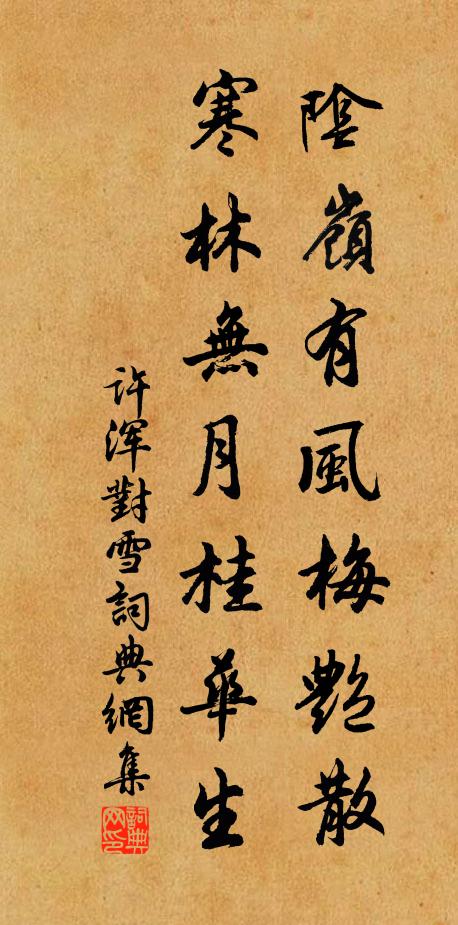 陰嶺有風梅艷散
寒林無月桂華生
许渾對雪詞典網集
詞典网印